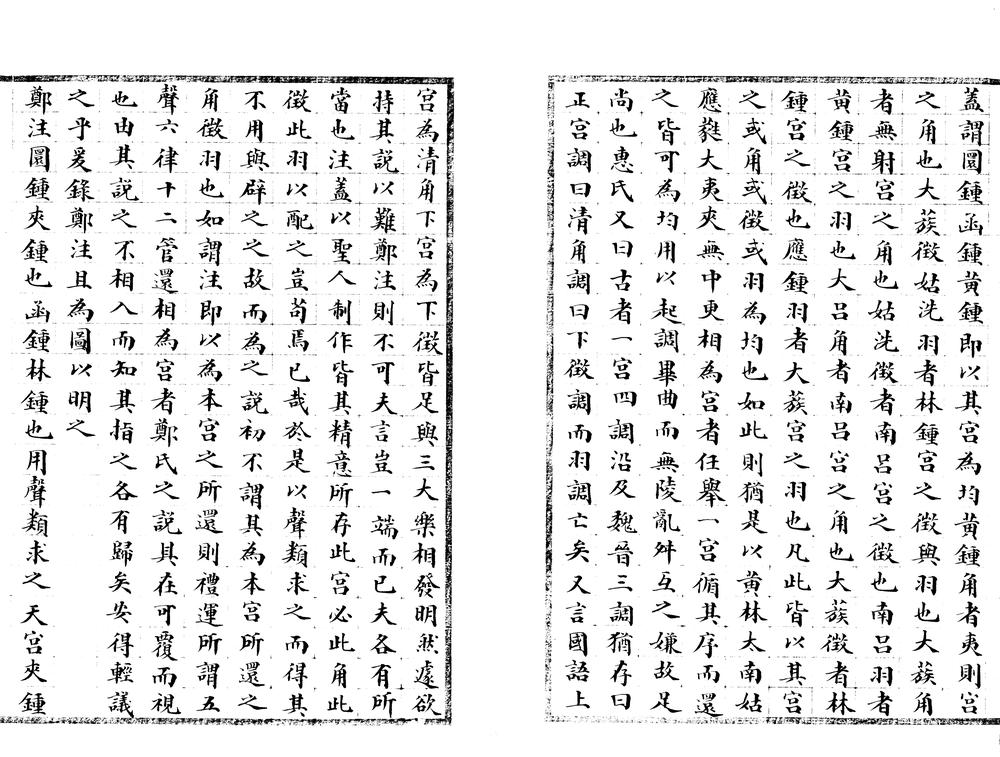 蓋謂圜鍾函鍾黃鍾即以其宮為均黃鍾角者夷則宮
之角也大蔟徵姑洗羽者林鍾宮之徵與羽也大蔟角
者無射宮之角也姑洗徵者南呂宮之徵也南呂羽者
黃鍾宮之羽也大呂角者南呂宮之角也大蔟徵者林
鍾宮之徵也應鍾羽者大蔟宮之羽也凡此皆以其宮
之或角或徵或羽為均也如此則猶是以黃林太南姑
應蕤大夷夾無中更相為宮者任舉一宮循其序而還
之皆可為均用以起調畢曲而無陵亂舛互之嫌故足
尚也惠氏又曰古者一宮四調沿及魏晉三調猶存曰
正宮調曰清角調曰下徵調而羽調亡矣又言國語上
宮為清角下宮為下徵皆足與三大樂相發明然遽欲
持其說以難鄭注則不可夫言豈一端而已夫各有所
當也注蓋以聖人制作皆其精意所存此宮必此角此
徵此羽以配之豈苟焉已哉於是以聲類求之而得其
不用與辟之之故而為之說初不謂其為本宮所還之
角徵羽也如謂注即以為本宮之所還則禮運所謂五
聲六律十二管還相為宮者鄭氏之說具在可覆而視
也由其說之不相入而知其指之各有歸矣安得輕議
之乎爰錄鄭注且為圖以明之
鄭注圜鍾夾鍾也函鍾林鍾也用聲類求之天宮夾鍾